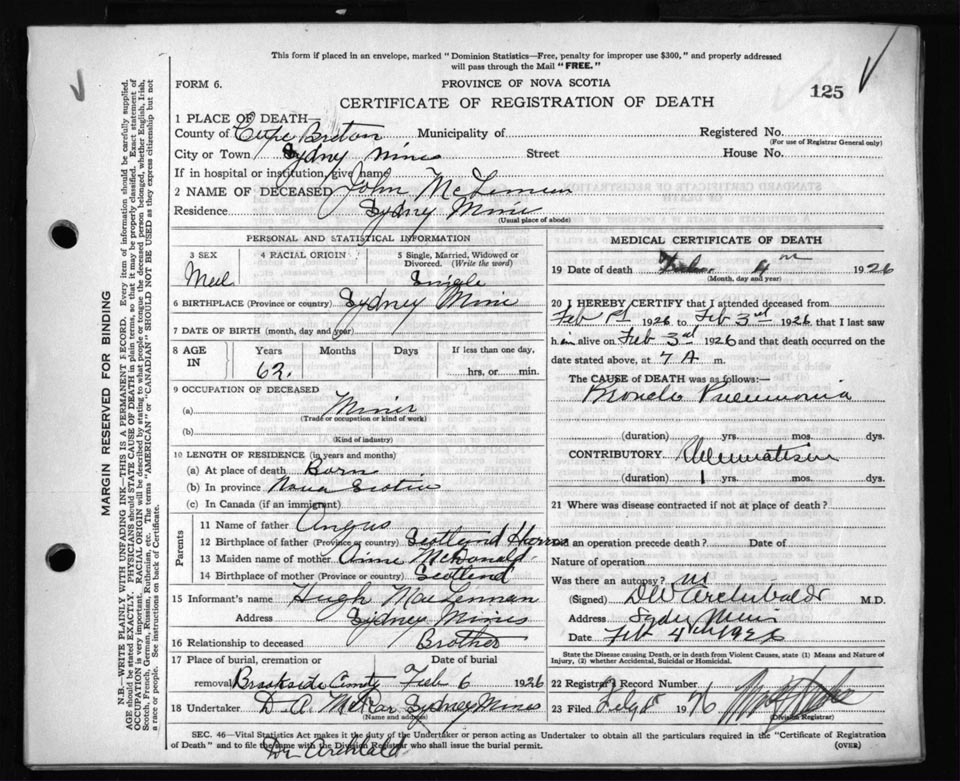 This form if placed in an envelope, marked "Dominion Statistics—Free, penalty for improper use $300," and properly addressed
will pass through the Mail "FREE."
FORM 6.
PROVINCE OF NOVA SCOTIA
CERTIFICATE OF REGISTRATION OF DEATH
125
1 PLACE OF DEATH
County of Cape Breton Municipality of Registered No.
(For use of Registrar General only)
City or Town Sydney Mines Street House No.
If in hospital or institution, give name
2 NAME OF DECEASED John
Residence Sydney Mines
(Usual place of abode)
PERSONAL AND STATISTICAL INFORMATION
3 SEX 4 RACIAL ORIGIN 5 Single, Married, Widowed or Divorced. (Write the word)
Single
6 BIRTHPLACE (Province or country) Sydney Mines
7 DATE OF BIRTH (month, day and year)
8 AGE IN Years Months Days If less than one day,
62. hrs. or min.
9 OCCUPATION OF DECEASED
(a) Miner
(Trade or occupation or kind of work)
(b)
(Kind of industry)
10 LENGTH OF RESIDENCE (in years and months)
(a) At place of death Born
(b) In province Nova Scotia
(c) In Canada (if an immigrant)
Parents
11 Name of father Angus
12 Birthplace of father (Province or country) Scotland Harris
13 Maiden name of mother Annie McDonald
14 Birthplace of mother (Province or country) Scotland
15 Informant's name Hugh MacLennan
Address Sydney Mines
16 Relationship to deceased Brother
17 Place of burial, cremation or Date of burial
removal Brookside Feb 6 1926
18 Undertaker D. A. McRae Sydney Mines
(Name and address)
MEDICAL CERTIFICATE OF DEATH
19 Date of death 4 1926
(Month, day and year)
20 I HEREBY CERTIFY that I attended deceased from
Feb 1926 to Feb 3rd 1926 that I last saw
him alive on Feb 3rd 1926 and that death occurred on the
date stated above, at 7 A m.
The CAUSE of DEATH was as follows:—
Broncho Pneumonia
(duration) yrs. mos. dys.
CONTRIBUTORY Rheumatism
(duration) 1 yrs. mos. dys.
21 Where was disease contracted if not at place of death?
an operation precede death? Date of
Nature of operation
Was there an autopsy? no
(Signed) DW Archibald M.D.
Address Sydney Mines
Date Feb 4th 1926
State the Disease causing Death, or in death from Violent Causes, state (1) Means and Nature of
Injury, (2) whether Accidental, Suicidal or Homicidal.
22 Registrar's Record Number
23 Filed 1926
(Division Registrar)
SEC. 46—Vital Statistics Act makes it the duty of the Undertaker or person acting as Undertaker to obtain all the particulars required in the "Certificate of Registration
of Death" and to file the same with the Division Registrar who shall issue the burial permit. (OVER)
Dr Archibald
MARGIN RESERVED FOR BINDING
N.B.—WRITE PLAINLY WITH UNFADING INK—THIS IS A PERMANENT RECORD. Every item of information should be carefully supplied.
AGE should be stated EXACTLY. PHYSICIANS should STATE CAUSE OF DEATH in plain terms, so that it may be properly classified. Exact statement of
OCCUPATION is very important. RACIAL ORIGIN will be described by stating to what people or tongue the deceased person belonged, whether English, Irish,
Scotch, French, German, Russian, Ruthenian, etc. The terms "AMERICAN" or "CANADIAN" SHOULD NOT BE USED as they express citizenship but not
a race or people. See instructions on back of Certificate.